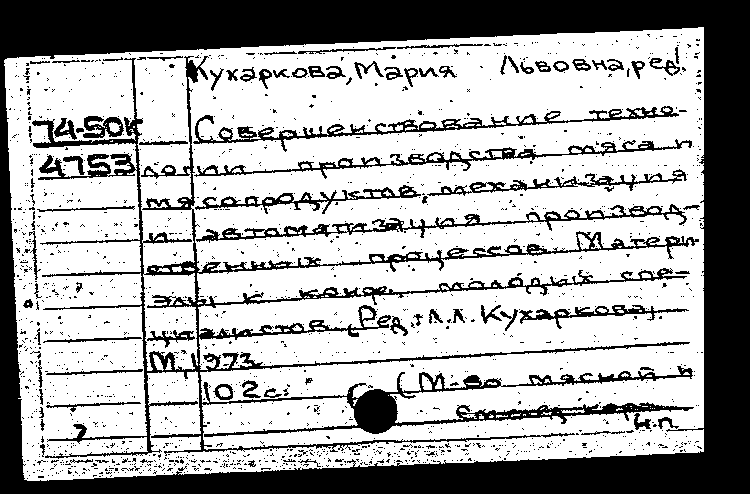 Кухаркова, Мария Львовна, ред.
74-50к Совершенствование техно-
4753 логии производства мяса и
мясопродуктов, механизация
и автоматизация производ-
ственных процессов. Матери-
алы к конф. молодых спе-
циалистов. [Ред.: Л.Л. Кухаркова].
М., 1973
102 с. (М-во мясной и
см. след. карт.
4.п